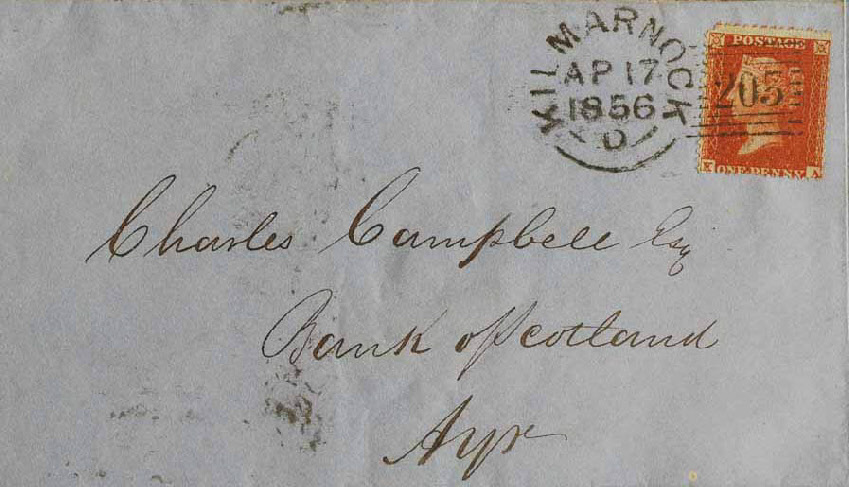 KILMARNOCK
AP 17
1856
D
POSTAGE
205
K A
ONE PENNY
Charles Campbell Esq
Bank of Scotland
Ayr